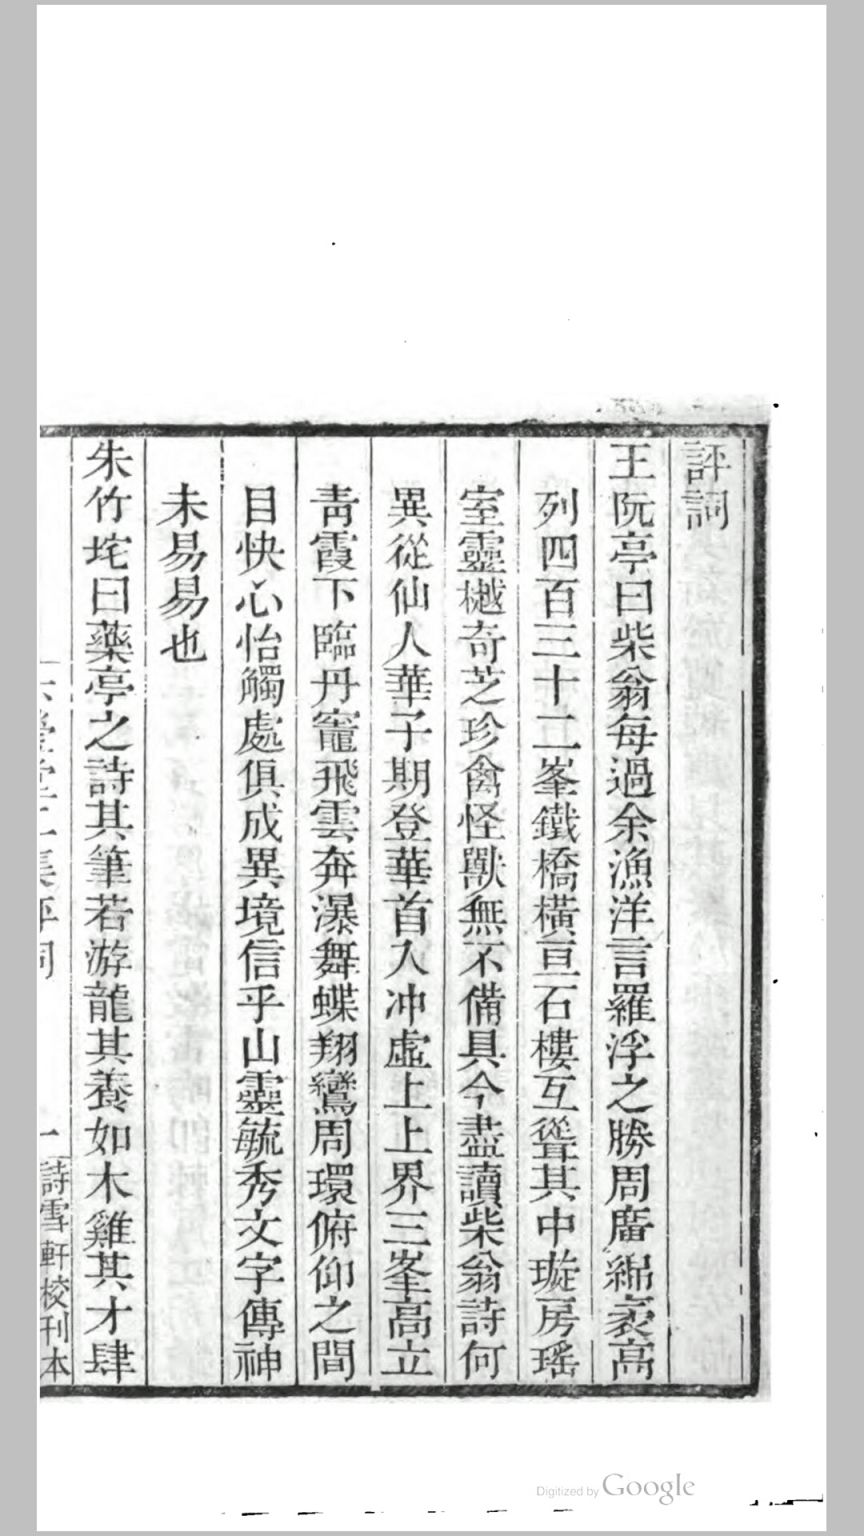 評詞
王阮亭曰柴翁每過余漁洋言羅浮之勝周廣綿袤高
列四百三十二峯鐵橋橫亘石樓互聳其中璇房瑤
室靈樾奇芝珍禽怪獸無不備具今盡讀柴翁詩何
異從仙人華子期登華首入冲虛上上界三峯高立
靑霞下臨丹竈飛雲奔瀑舞蝶翔鸞周環俯仰之間
目快心怡觸處俱成異境信乎山靈毓秀文字傳神
未易易也
朱竹垞曰藥亭之詩其筆若游龍其養如木雞其才肆
六瑩堂二集評詞 一 詩雪軒校刊本
Digitized by Google